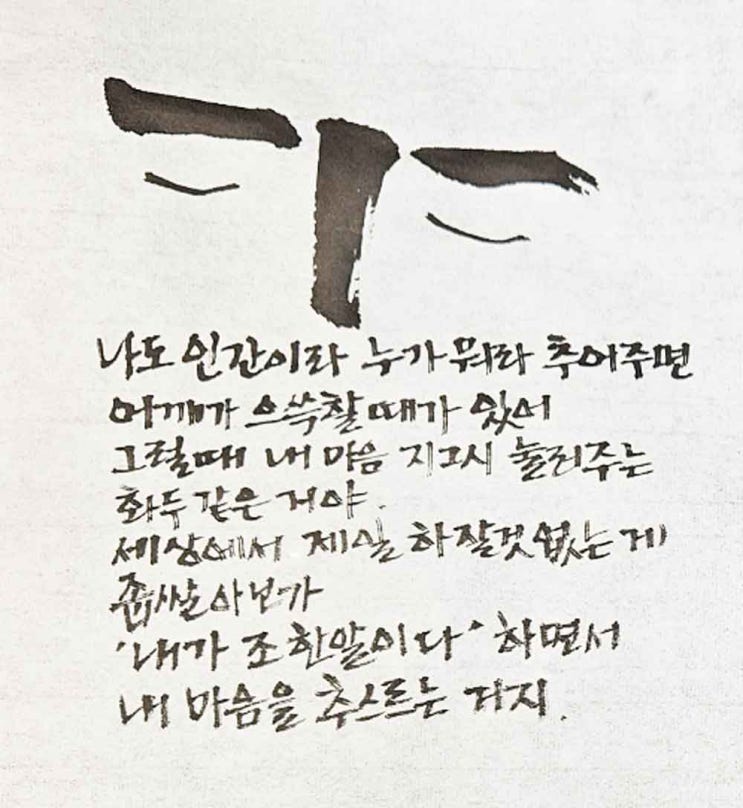 나도 인간이라 누가 뭐라 추어주면
어깨가 으쓱할 때가 있어
그럴때 내 마음 지그시 눌러주는
화두 같은 거야.
세상에서 제일 하잘것없는 게
좁쌀 아닌가
'내가 조 한알이다' 하면서
내 마음을 추스르는 거지.